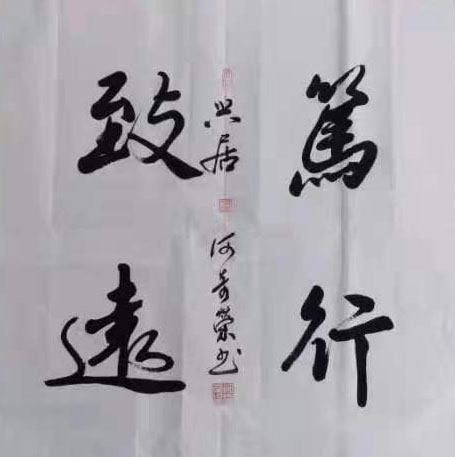 篤行
致遠
兴居 何奇榮书